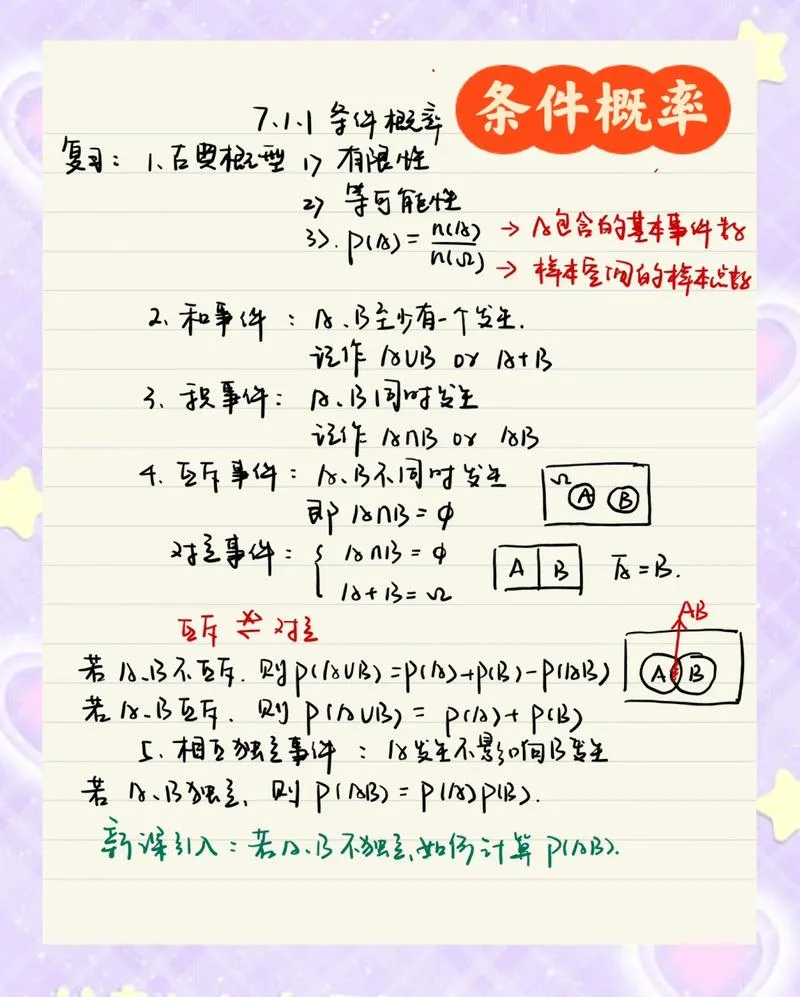 条件概率
7.1.1 条件概率
复习：1、古典概型 1) 有限性
2) 等可能性
3). P(A) = n(A)/n(Ω) → A包含的基本事件数
→ 样本空间的样本点数
2、和事件：A、B至少有一个发生.
记作 A∪B or A+B
3、积事件：A、B同时发生
记作 A∩B or AB
4、互斥事件：A、B不同时发生
即 A∩B = ϕ
Ω A B
对立事件：{ A∩B = ϕ
A+B = Ω
A B
Ā = B.
互斥 ⇌ 对立
AB
A B
若 A、B不互斥. 则 P(A∪B) = P(A)+P(B)-P(AB)
若 A、B互斥. 则 P(A∪B) = P(A)+P(B)
5、相互独立事件：A发生不影响B发生
若 A、B独立, 则 P(AB) = P(A)P(B).
新课引入：若A、B不独立,如何计算 P(AB).